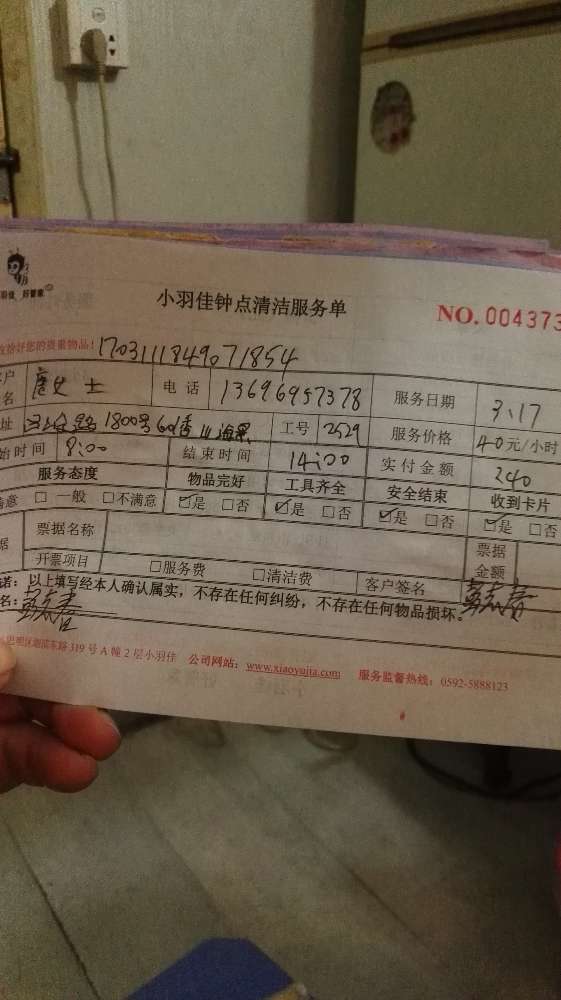 小羽佳钟点清洁服务单
NO. 004373
您的贵重物品! 1703111849071854
名 唐女士 电话 13696957378 服务日期 3.17
址 1800号 工号 2529 服务价格 40元/小时
始时间 8:00 结束时间 14:00 实付金额 240
服务态度 物品完好 工具齐全 安全结束 收到卡片
满意 □ 一般 □不满意 ☑是 □否 ☑是 □否 ☑是 □否 ☑是 □否
据 票据名称 票据金额
开票项目 □服务费 □清洁费 客户签名
诺:以上填写经本人确认属实,不存在任何纠纷,不存在任何物品损坏。
名:
思明区湖滨东路 319 号 A 幢 2 层小羽佳 公司网站:www.xiaoyujia.com 服务监督热线:0592-5888123